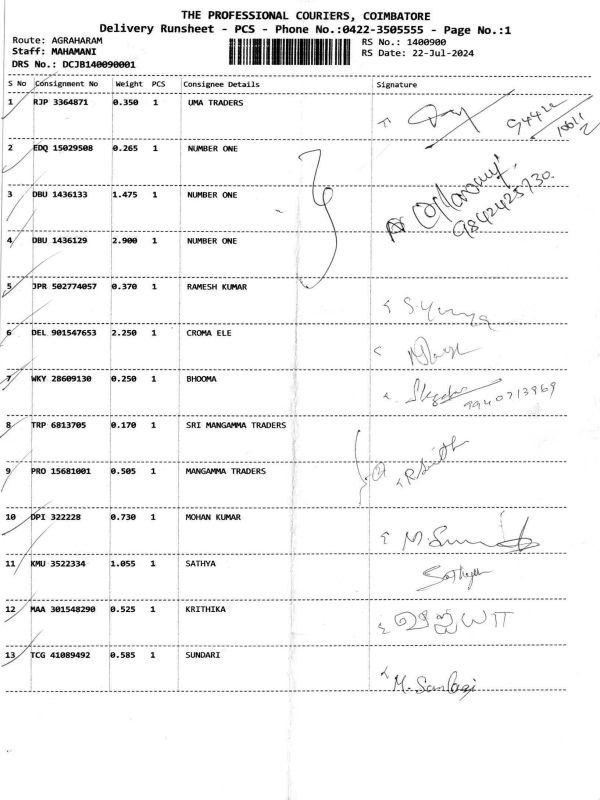 THE PROFESSIONAL COURIERS, COIMBATORE
Delivery Runsheet - PCS - Phone No.:0422-3505555 - Page No.:1
Route: AGRAHARAM
Staff: MAHAMANI
DRS No.: DCJB140090001
RS No.: 1400900
RS Date: 22-Jul-2024
S No Consignment No Weight PCS Consignee Details Signature
1 RJP 3364871 0.350 1 UMA TRADERS
2 EDQ 15029508 0.265 1 NUMBER ONE
3 DBU 1436133 1.475 1 NUMBER ONE
9842425730.
4 DBU 1436129 2.900 1 NUMBER ONE
5 JPR 502774057 0.370 1 RAMESH KUMAR
6 DEL 901547653 2.250 1 CROMA ELE
7 WKY 28609130 0.250 1 BHOOMA
9940713969
8 TRP 6813705 0.170 1 SRI MANGAMMA TRADERS
9 PRO 15681001 0.505 1 MANGAMMA TRADERS
10 DPI 322228 0.730 1 MOHAN KUMAR
11 KMU 3522334 1.055 1 SATHYA
Sathya
12 MAA 301548290 0.525 1 KRITHIKA
13 TCG 41089492 0.585 1 SUNDARI